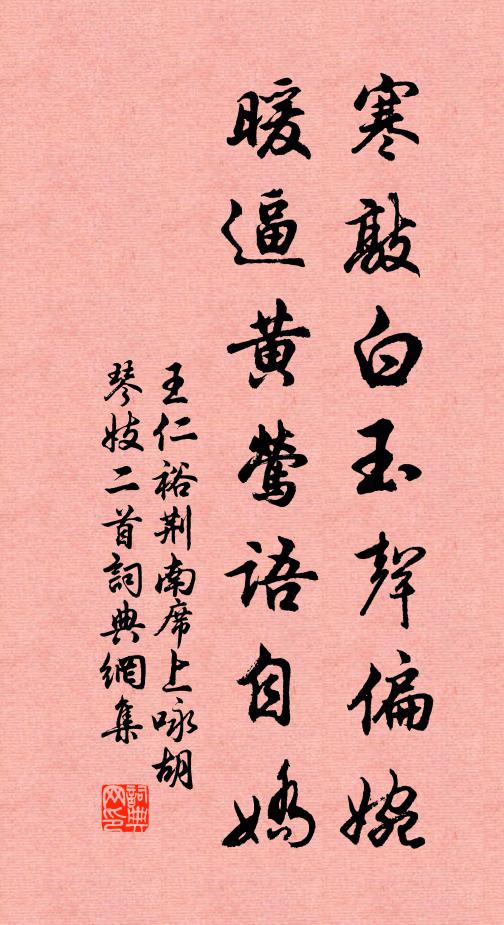 寒敲白玉聲偏婉
暖逼黄鶯語自嬌
王仁裕荆南席上咏胡
琴妓二首詞典網集
詞典網印